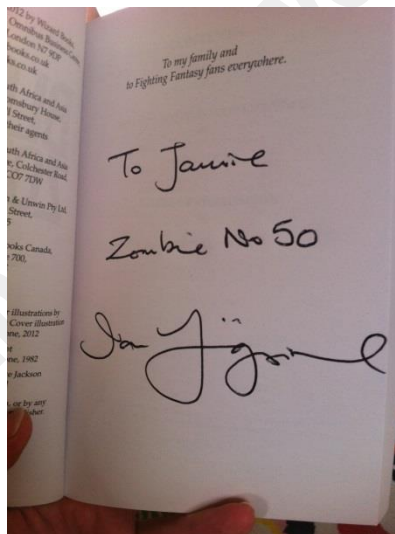 2012 by Wizard Books,
Omnibus Business Centre,
London N7 9DP
books.co.uk
ks.co.uk
uth Africa and Asia
Street,
their agents
uth Africa and Asia
e, Colchester Road,
CO7 7DW
n & Unwin Pty Ltd,
Street,
ooks Canada,
700,
illustrations by
Cover illustration
one, 2012
one, 1982
e Jackson
, or by any
To my family and
to Fighting Fantasy fans everywhere.
To Jamie
Zombie No 50
Ian Livingstone